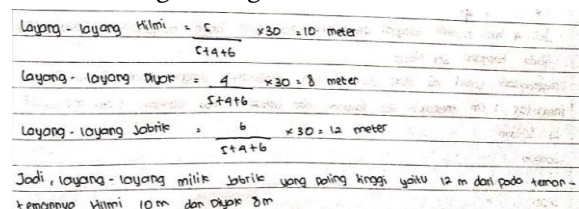 Layang - layang Hilmi = 5 × 30 = 10 meter
5+4+6
Layang - layang Diyok 4 × 30 = 8 meter
5+4+6
Layang - layang Jabrik = 6 × 30 = 12 meter
5+4+6
Jadi, layang - layang milik Jabrik yang paling tinggi yaitu 12 m dari pada teman -
temannya Hilmi 10 m dan Diyok 8 m